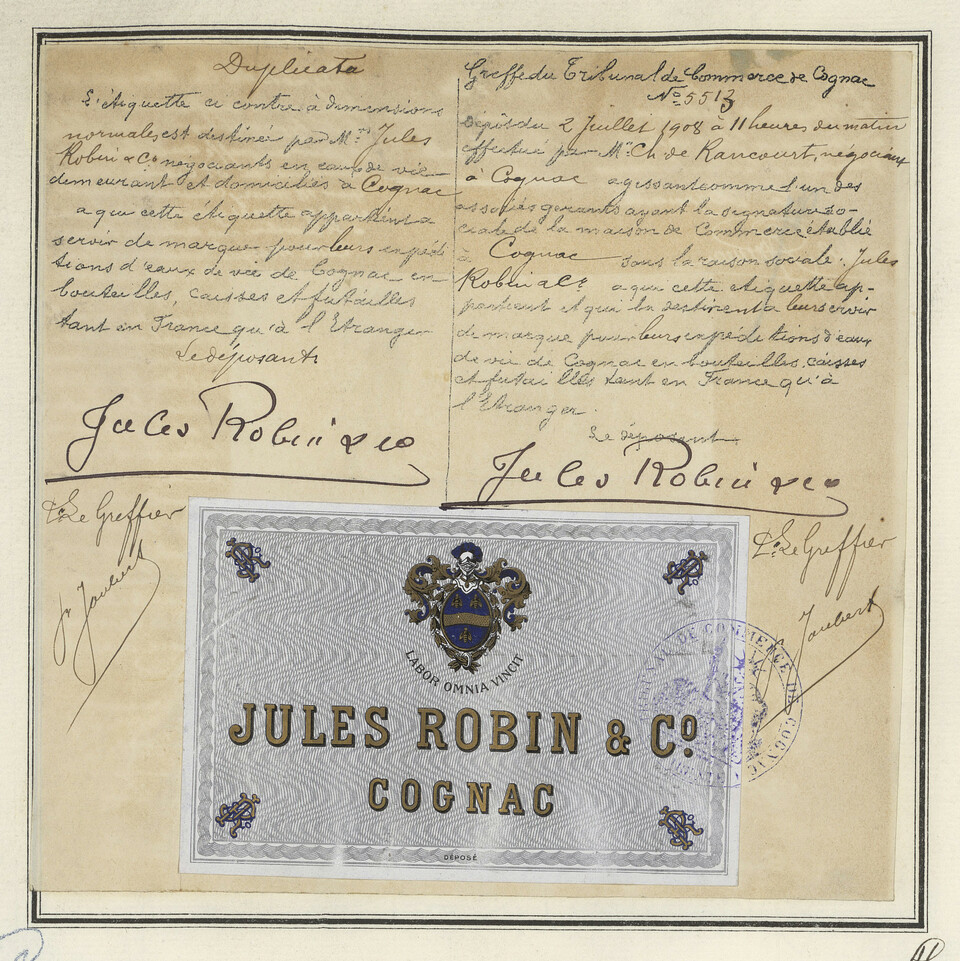 Duplicata
L'étiquette ci contre à dimensions
normales est destinée par Mrs Jules
Robin & Co negociants en eaux de vie
demeurant et domiciliés à Cognac
a qui cette étiquette appartient a
servir de marque pour leurs expédi
tions d'eaux de vie de Cognac en
bouteilles, caisses et futailles
tant en France qu'à l'Etranger
Le déposant
Jules Robin & Co
Pr Le Greffier
Jaubert
Greffe du Tribunal de Commerce de Cognac
No 5513
Dépôt du 2 Juillet 1908 à 11 heures du matin
effectué par Mr Ch. de Rancourt, négociant
à Cognac agissant comme l'un des
associés gerants ayant la signature so-
ciale de la maison de Commerce établie
à Cognac sous la raison sociale: Jules
Robin & Co a qui cette étiquette ap-
partient et qui la destinent a leur servir
de marque pour leurs expéditions d'eaux
de vie de Cognac en bouteilles, caisses
et futailles tant en France qu'à
l'Etranger.
Le déposant
Jules Robin & Co
Pr Le Greffier
Jaubert
LABOR OMNIA VINCIT
JULES ROBIN & Co
COGNAC
DÉPOSÉ
TRIBUNAL DE COMMERCE DE COGNAC